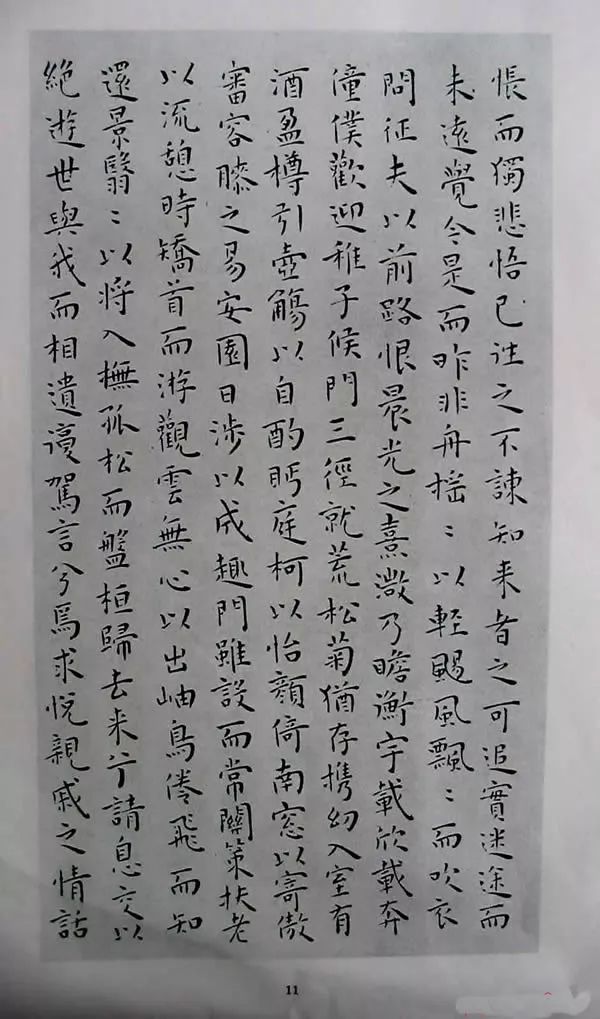 悵而獨悲悟已往之不諫知来者之可追實迷途而
未遠覺今是而昨非舟揺〻以輕颺風飄〻而吹衣
問征夫以前路恨晨光之熹微乃瞻衡宇載欣載奔
僮僕歡迎稚子候門三徑就荒松菊猶存携幼入室有
酒盈樽引壺觴以自酌眄庭柯以怡顔倚南窓以寄傲
審容膝之易安園日渉以成趣門雖設而常關策扶老
以流憩時矯首而游觀雲無心以出岫鳥倦飛而知
還景翳〻以将入撫孤松而盤桓歸去来兮請息交以
絶遊世與我而相遺復駕言兮焉求悅親戚之情話
11